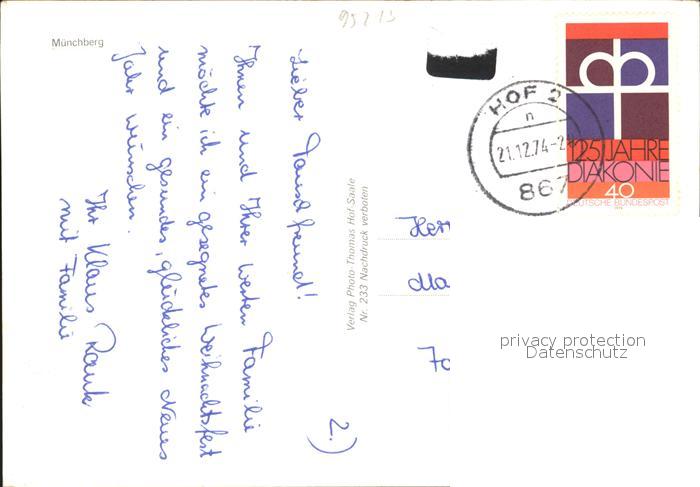 99213
Münchberg
Lieber Tauschfreund!
Ihnen und Ihrer werten Familie
möchte ich ein gesegnetes Weihnachtsfest
und ein gesundes, glückliches Neues
Jahr wünschen.
Ihr Klaus Rauh
mit Familie
2.)
Verlag Photo-Thomas Hof/Saale
Nr. 233 Nachdruck verboten
HOF 2
n
21.12.74-2
867
125 JAHRE
DIAKONIE
40
DEUTSCHE BUNDESPOST
Her
Ma
70
privacy protection
Datenschutz